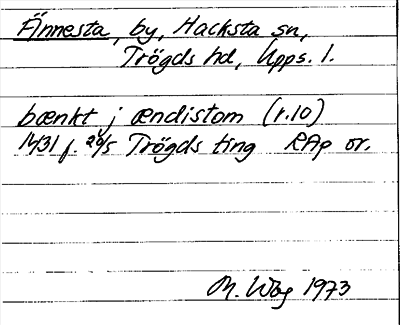 Ännesta, by, Hacksta sn,
Trögds hd, Upps. l.
bænkt j ændistom (r.10)
1431 f. 20/5 Trögds ting RAp or.
M. Wbg 1973